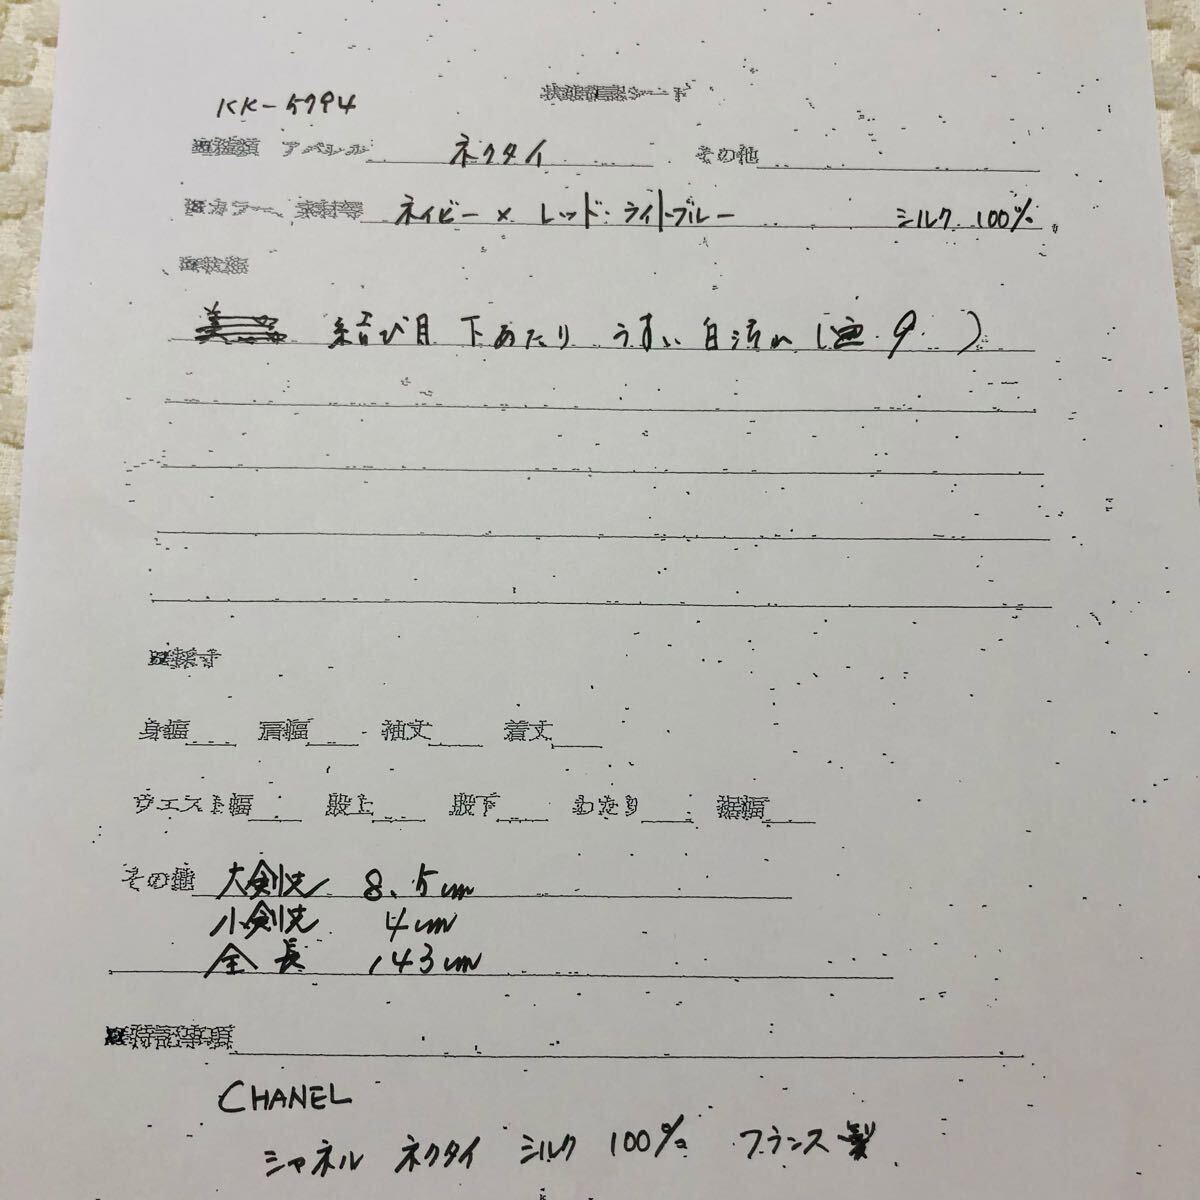 状態確認シート
KK-5794
■種類 アパレル ネクタイ その他
■カラー、素材等 ネイビー × レッド・ライトブルー シルク 100%
■状態
結び目 下あたり うすい 白汚れ ( 9 )
■採寸
身幅 肩幅 袖丈 着丈
ウエスト幅 股上 股下 わたり 裾幅
その他 大剣先 8.5cm
小剣先 4cm
全長 143cm
■特記事項
CHANEL
シャネル ネクタイ シルク 100% フランス製